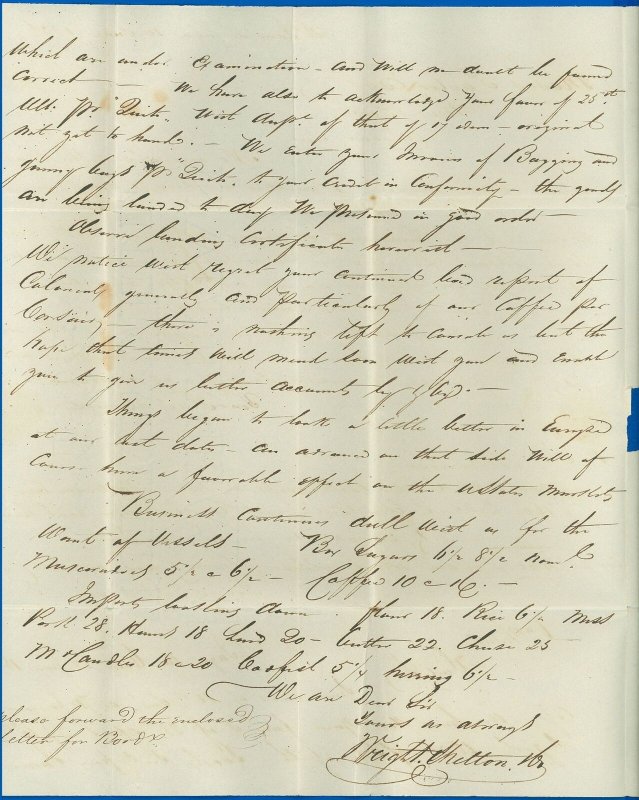 which are under Examination - and will no doubt be found
correct - We have also to acknowledge your favor of 25th
Ulto pr Quik. With dupt of that of 17 idem - original
not yet to hand. - We enter your Invoice of Bagging and
gunny bags pr "Quik" to your credit in Conformity - the goods
are being landed to day We presume in good order -
landing Certificate herewith -
We notice with regret your continued bad report of
Colonials generally and particularly of our Coffee per
Corsair - there is nothing left to console us but the
hope that times will mend soon with you and enable
you to give us better accounts by & by. -
Things began to look a little better in Europe
at our last dates - an advance on that side will of
course have a favorable effect on the UStates Markets
Business continues dull with us for the
Want of Vessels - Box Sugars 6 1/2 a 8 1/2 noml
Muscovados 5 1/2 a 6 1/2 - Coffee 10 a 16. -
Imports looking down. flour 18. Rice 6 1/2 Mess
Pork 28. Hams 18 Lard 20 - butter 22. Cheese 25
M Candles 18 a 20 Codfish 5 1/4 herring 6 1/2 -
We are Dear Sir
Yours as always
Wright Shelton & Co
please forward the enclosed
letter for